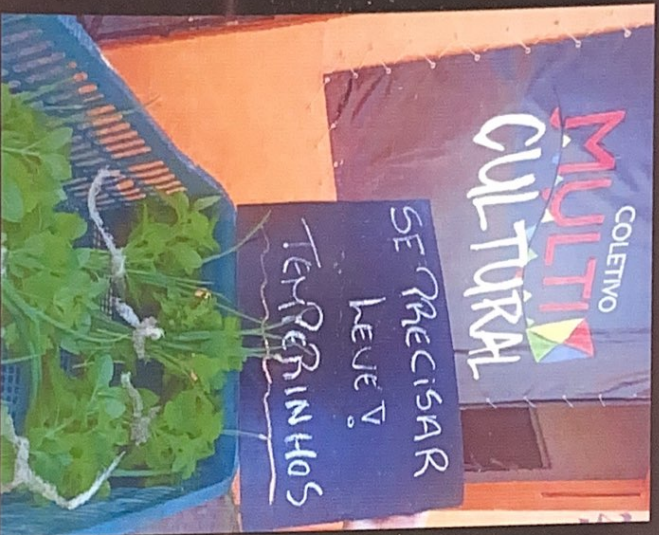 COLETIVO
MULTI
CULTURAL
SE PRECISAR
LEVE!
TEMPERINHOS